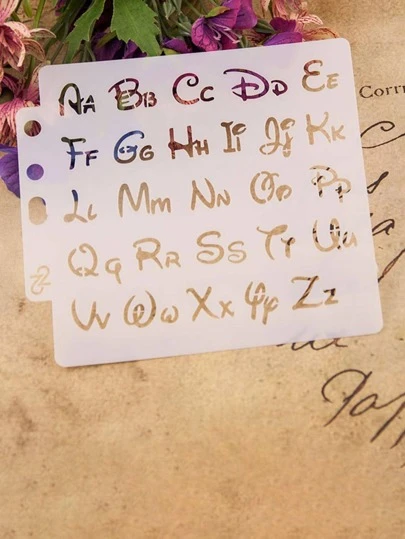 Aa Bb Cc Dd Ee
Corr
Ff Gg Hh Ii Jj Kk
Ll Mm Nn Oo Pp
Qq Rr Ss Tt Uu
Vv Ww Xx Yy Zz